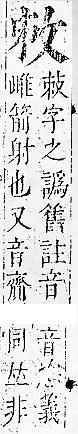 字之譌舊註音
雌箭射也又音齋
音 義
同𠀤非